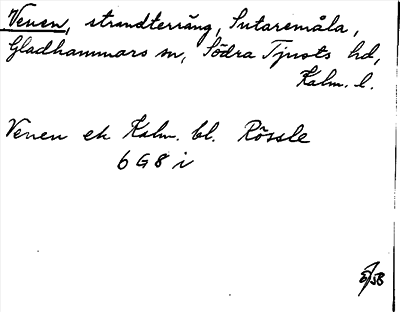 Venen, strandterräng, Sutaremåla,
Gladhammars sn, Södra Tjusts hd,
Kalm. l.
Venen ek Kalm. bl. Rössle
6 G 8 i
/58